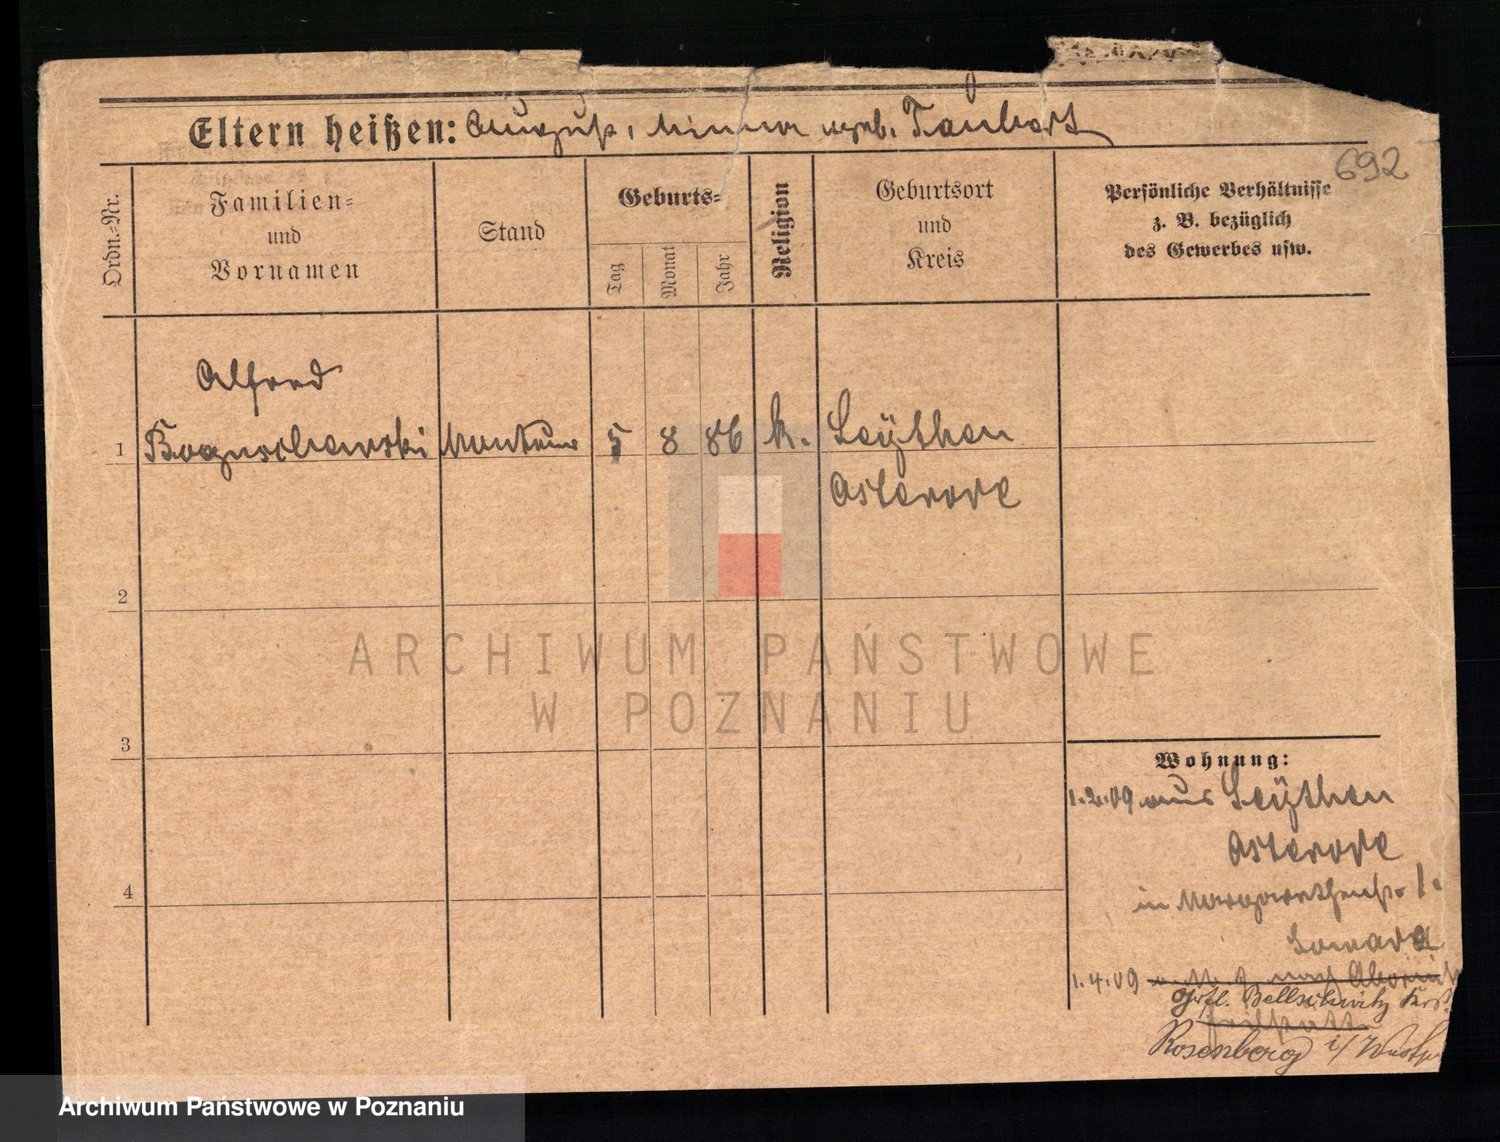 Eltern heißen: August, Minna geb. Taubert
692
Ordn.-Nr.
Familien-
und
Vornamen
Stand
Geburts-
Tag
Monat
Jahr
Religion
Geburtsort
und
Kreis
Persönliche Verhältnisse
z. B. bezüglich
des Gewerbes usw.
Alfred
1 Boguschewski Monteur 5 8 86 k. Leythen
Osterode
2
ARCHIWUM PAŃSTWOWE
W POZNANIU
3
Wohnung:
1.2.09 aus Leythen
Osterode
4
in Margarethenstr. 1.
1.4.09
Bellschwitz
Rosenberg i/Westpr
Archiwum Państwowe w Poznaniu